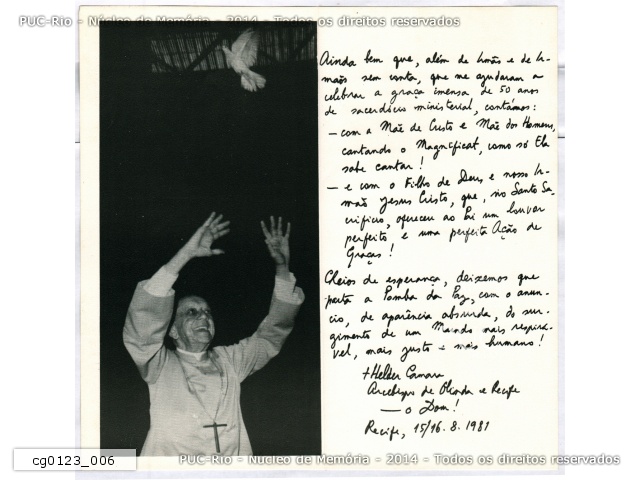 PUC-Rio - Núcleo de Memória - 2014 - Todos os direitos reservados
Ainda bem que, além de Irmãs e de Ir-
mãos sem conta, que me ajudaram a
celebrar a graça imensa de 50 anos
de sacerdócio ministerial, contámos:
— com a Mãe de Cristo e Mãe dos Homens,
cantando o Magnificat, como só Ela
sabe cantar!
— e com o Filho de Deus e nosso Ir-
mão Jesus Cristo, que, no Santo Sa-
crifício, ofereceu ao Pai um louvor
perfeito e uma perfeita Ação de
Graças!
Cheios de esperança, deixemos que
parta a Pomba da Paz, com o anún-
cio, de aparência absurda, do sur-
gimento de um Mundo mais respirá-
vel, mais justo e mais humano!
+ Helder Camara
Arcebispo de Olinda e Recife
— o Dom!
Recife, 15/16.8.1981
cg0123_006
PUC-Rio - Núcleo de Memória - 2014 - Todos os direitos reservados